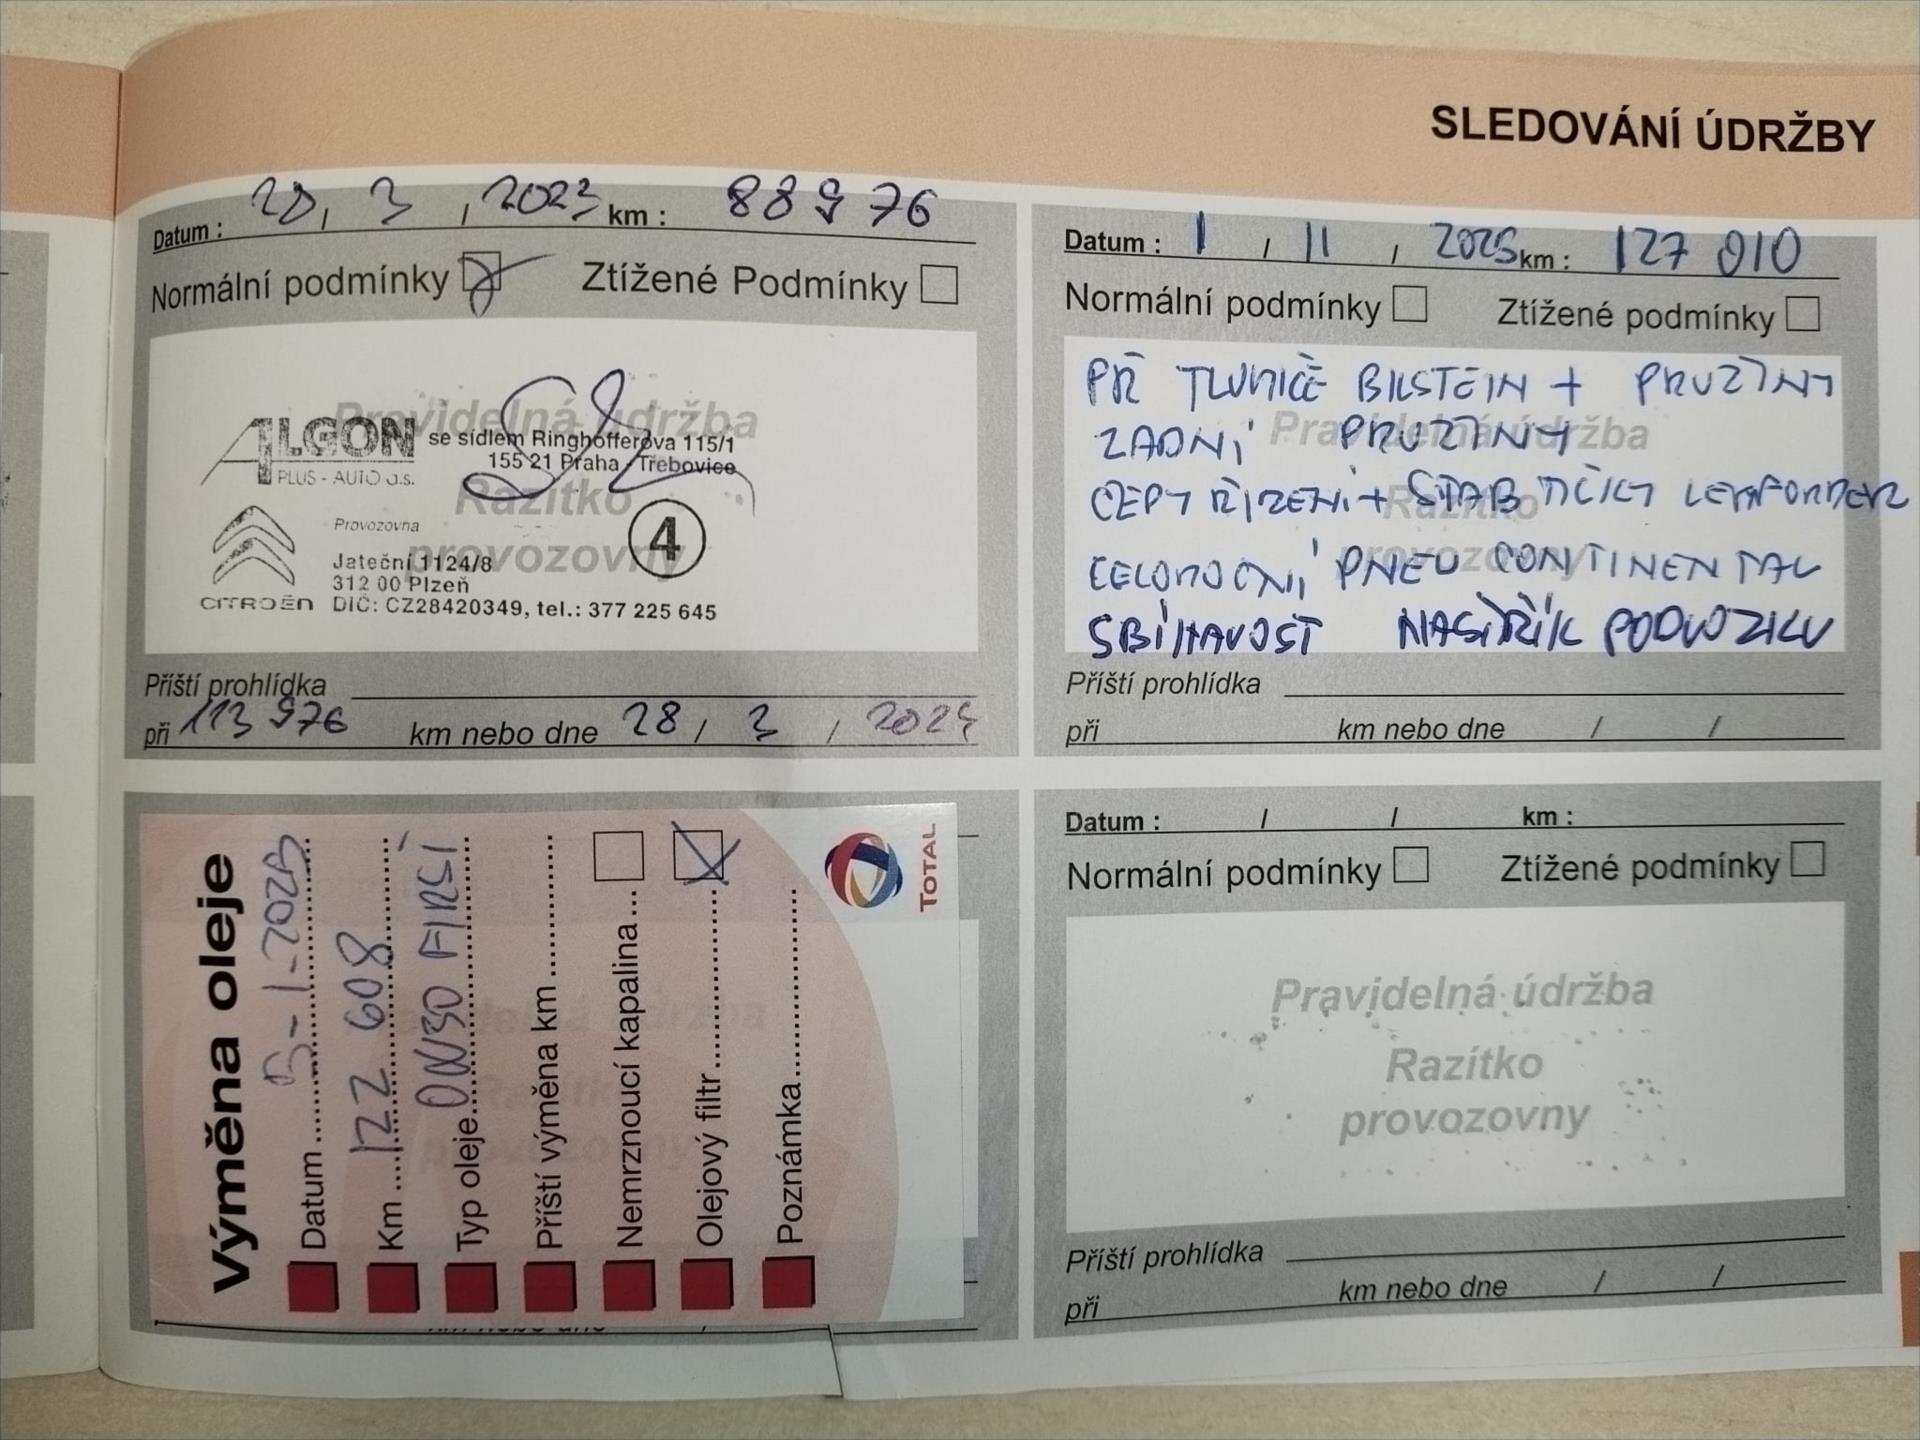 SLEDOVÁNÍ ÚDRŽBY
Datum : 28, 3, 2023 km : 88976
Normální podmínky Ztížené Podmínky
Pravidelná údržba
ALGON se sídlem Ringhofferova 115/1
PLUS - AUTO a.s. 155 21 Praha - Třebovice
Razítko
Provozovna
provozovny
4
Jateční 1124/8
312 00 Plzeň
CITROËN DIČ: CZ28420349, tel.: 377 225 645
Příští prohlídka
při 113 976 km nebo dne 28 / 3 / 2024
Datum : 1 / 11 / 2025 km : 127 010
Normální podmínky Ztížené podmínky
Pravidelná údržba
Razítko
provozovny
PŘ TLUMIČE BILSTEIN + PRUŽINY
ZADNÍ PRUŽINY
ČEPY ŘÍZENÍ + STAB TIČKY LEMFORDER
CELOROČNÍ PNEU CONTINENTAL
SBÍHAVOST NÁSTŘIK PODVOZKU
Příští prohlídka
při km nebo dne / /
Výměna oleje
Datum
Km 122 608
Typ oleje 0W30 FIRST
Příští výměna km
Nemrznoucí kapalina
Olejový filtr
Poznámka
TOTAL
Datum : / / km :
Normální podmínky Ztížené podmínky
Pravidelná údržba
Razítko
provozovny
Příští prohlídka
při km nebo dne / /